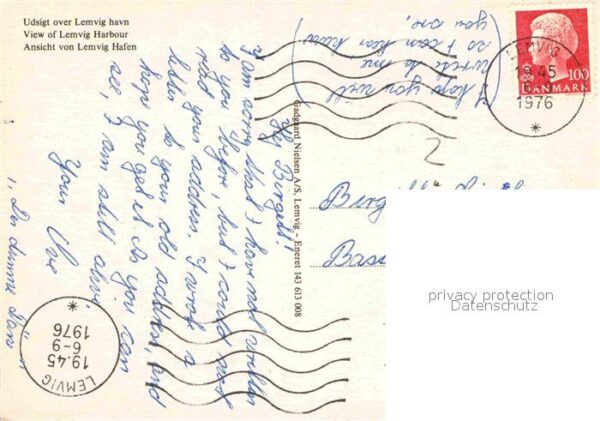 Udsigt over Lemvig havn
View of Lemvig Harbour
Ansicht von Lemvig Hafen
Hy Birgatt!
I am sorry, that I have not written
to you before, but I could not
read your address. I wrote a
letter to your old address, and
hope you got it. As you can
see, I am still alive.
Your Uve
"Der dumme Däne"
(I hope you will
write to me
so I can hear how
you are.)
Gadgaard Nielsen A/S, Lemvig - Eneret 143 613 008
100
DANMARK
LEMVIG
19.45
1976
Birg
Bass
privacy protection
Datenschutz
LEMVIG
19.45
6-9
1976